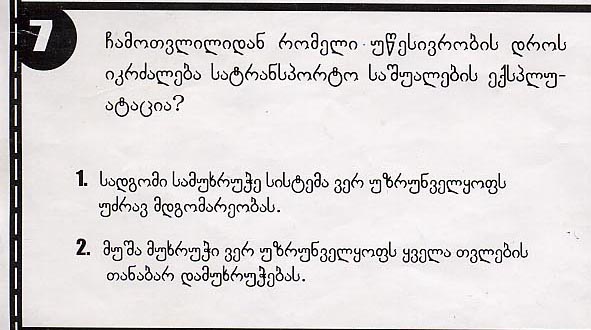 7
ჩამოთვლილიდან რომელი უწესივრობის დროს
იკრძალება სატრანსპორტო საშუალების ექსპლუ-
ატაცია?
1. სადგომი სამუხრუჭე სისტემა ვერ უზრუნველყოფს
უძრავ მდგომარეობას.
2. მუშა მუხრუჭი ვერ უზრუნველყოფს ყველა თვლების
თანაბარ დამუხრუჭებას.